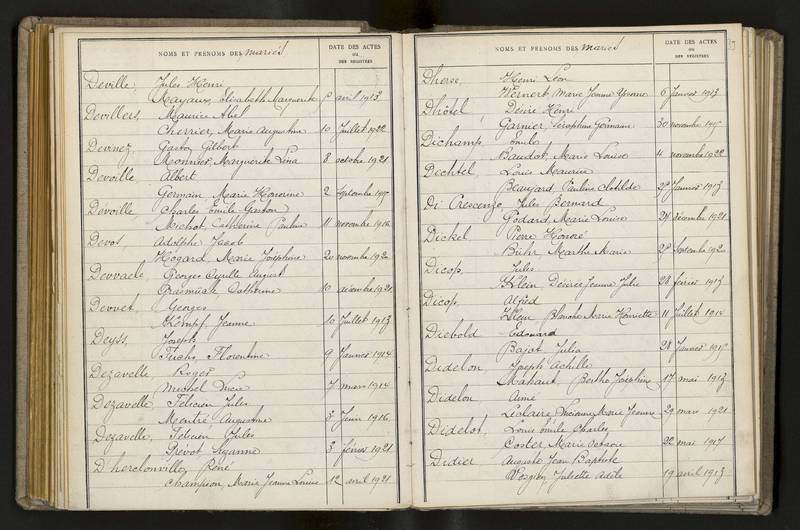 NOMS ET PRÉNOMS DES mariés
DATE DES ACTES
OU
DES REGISTRES
Deville, Jules Henri
Mayaux, Elisabeth Marguerite avril 1913
Devillers, Maurice Abel
Cherrier, Marie Augustine 10 Juillet 1922
Devinez, Gaston Gilbert
Monnier, Marguerite Lina 8 octobre 1921
Devoille Albert
Germain, Marie Honorine 2 Septembre
Devoille Charles Emile Gaston
Michot, Catherine Pauline 11 novembre 1916
Devot Adolphe Jacob
Hogard Marie Joséphine 20 novembre 1920
Devvaele Georges Cyrille August
Catherine 10 décembre 1921
Devvet Georges
Kempf, Jeanne 10 Juillet 1913
Deyss, Joseph
Fuchs, Florentine 9 Janvier 1914
Dezavelle Roger
Michel Lucie 7 mars 1914
Dezavelle, Félicien Jules
Mentré Augustine 3 Juin 1916
Dezavelle, Félicien Jules
Prevot Suzanne 3 février 1921
D'herclonville, René
Champion, Marie Jeanne Louise 12 avril 1921
NOMS ET PRÉNOMS DES mariés
DATE DES ACTES
OU
DES REGISTRES
Dherse, Henri Léon
Wernert Marie Jeanne Yvonne 6 Janvier 1913
Dhôtel, Désiré Henri
Garnier, Séraphine Germaine 30 novembre
Dichamp, Emile
Baudot, Marie Louise 4 novembre 1922
Dichtel, Louis Maurice
Beaujard, Pauline Clotilde Janvier
Di Crescenzo, Jules Bernard
Godard, Marie Louise 24 décembre 1921
Dickel Pierre Honoré
Bühr Marthe Marie Septembre 1920
Dicop, Jules
Klein Désirée Jeanne Julie 28 février
Dicop, Alfred
Klein Blanche Marie Henriette 11 Juillet 1914
Diebold Edouard
Bajot Julia 28 Janvier
Didelon Joseph Achille
Mahaut, Berthe Joséphine 17 mai 1913
Didelon Aimé
Leclaire, Lucienne Marie Jeanne 29 mars 1921
Didelot, Louis Emile Charles
Coster, Marie Octavie 22 mai 1917
Didier Auguste Jean Baptiste
Vosgien, Juliette Adèle 19 avril 1913